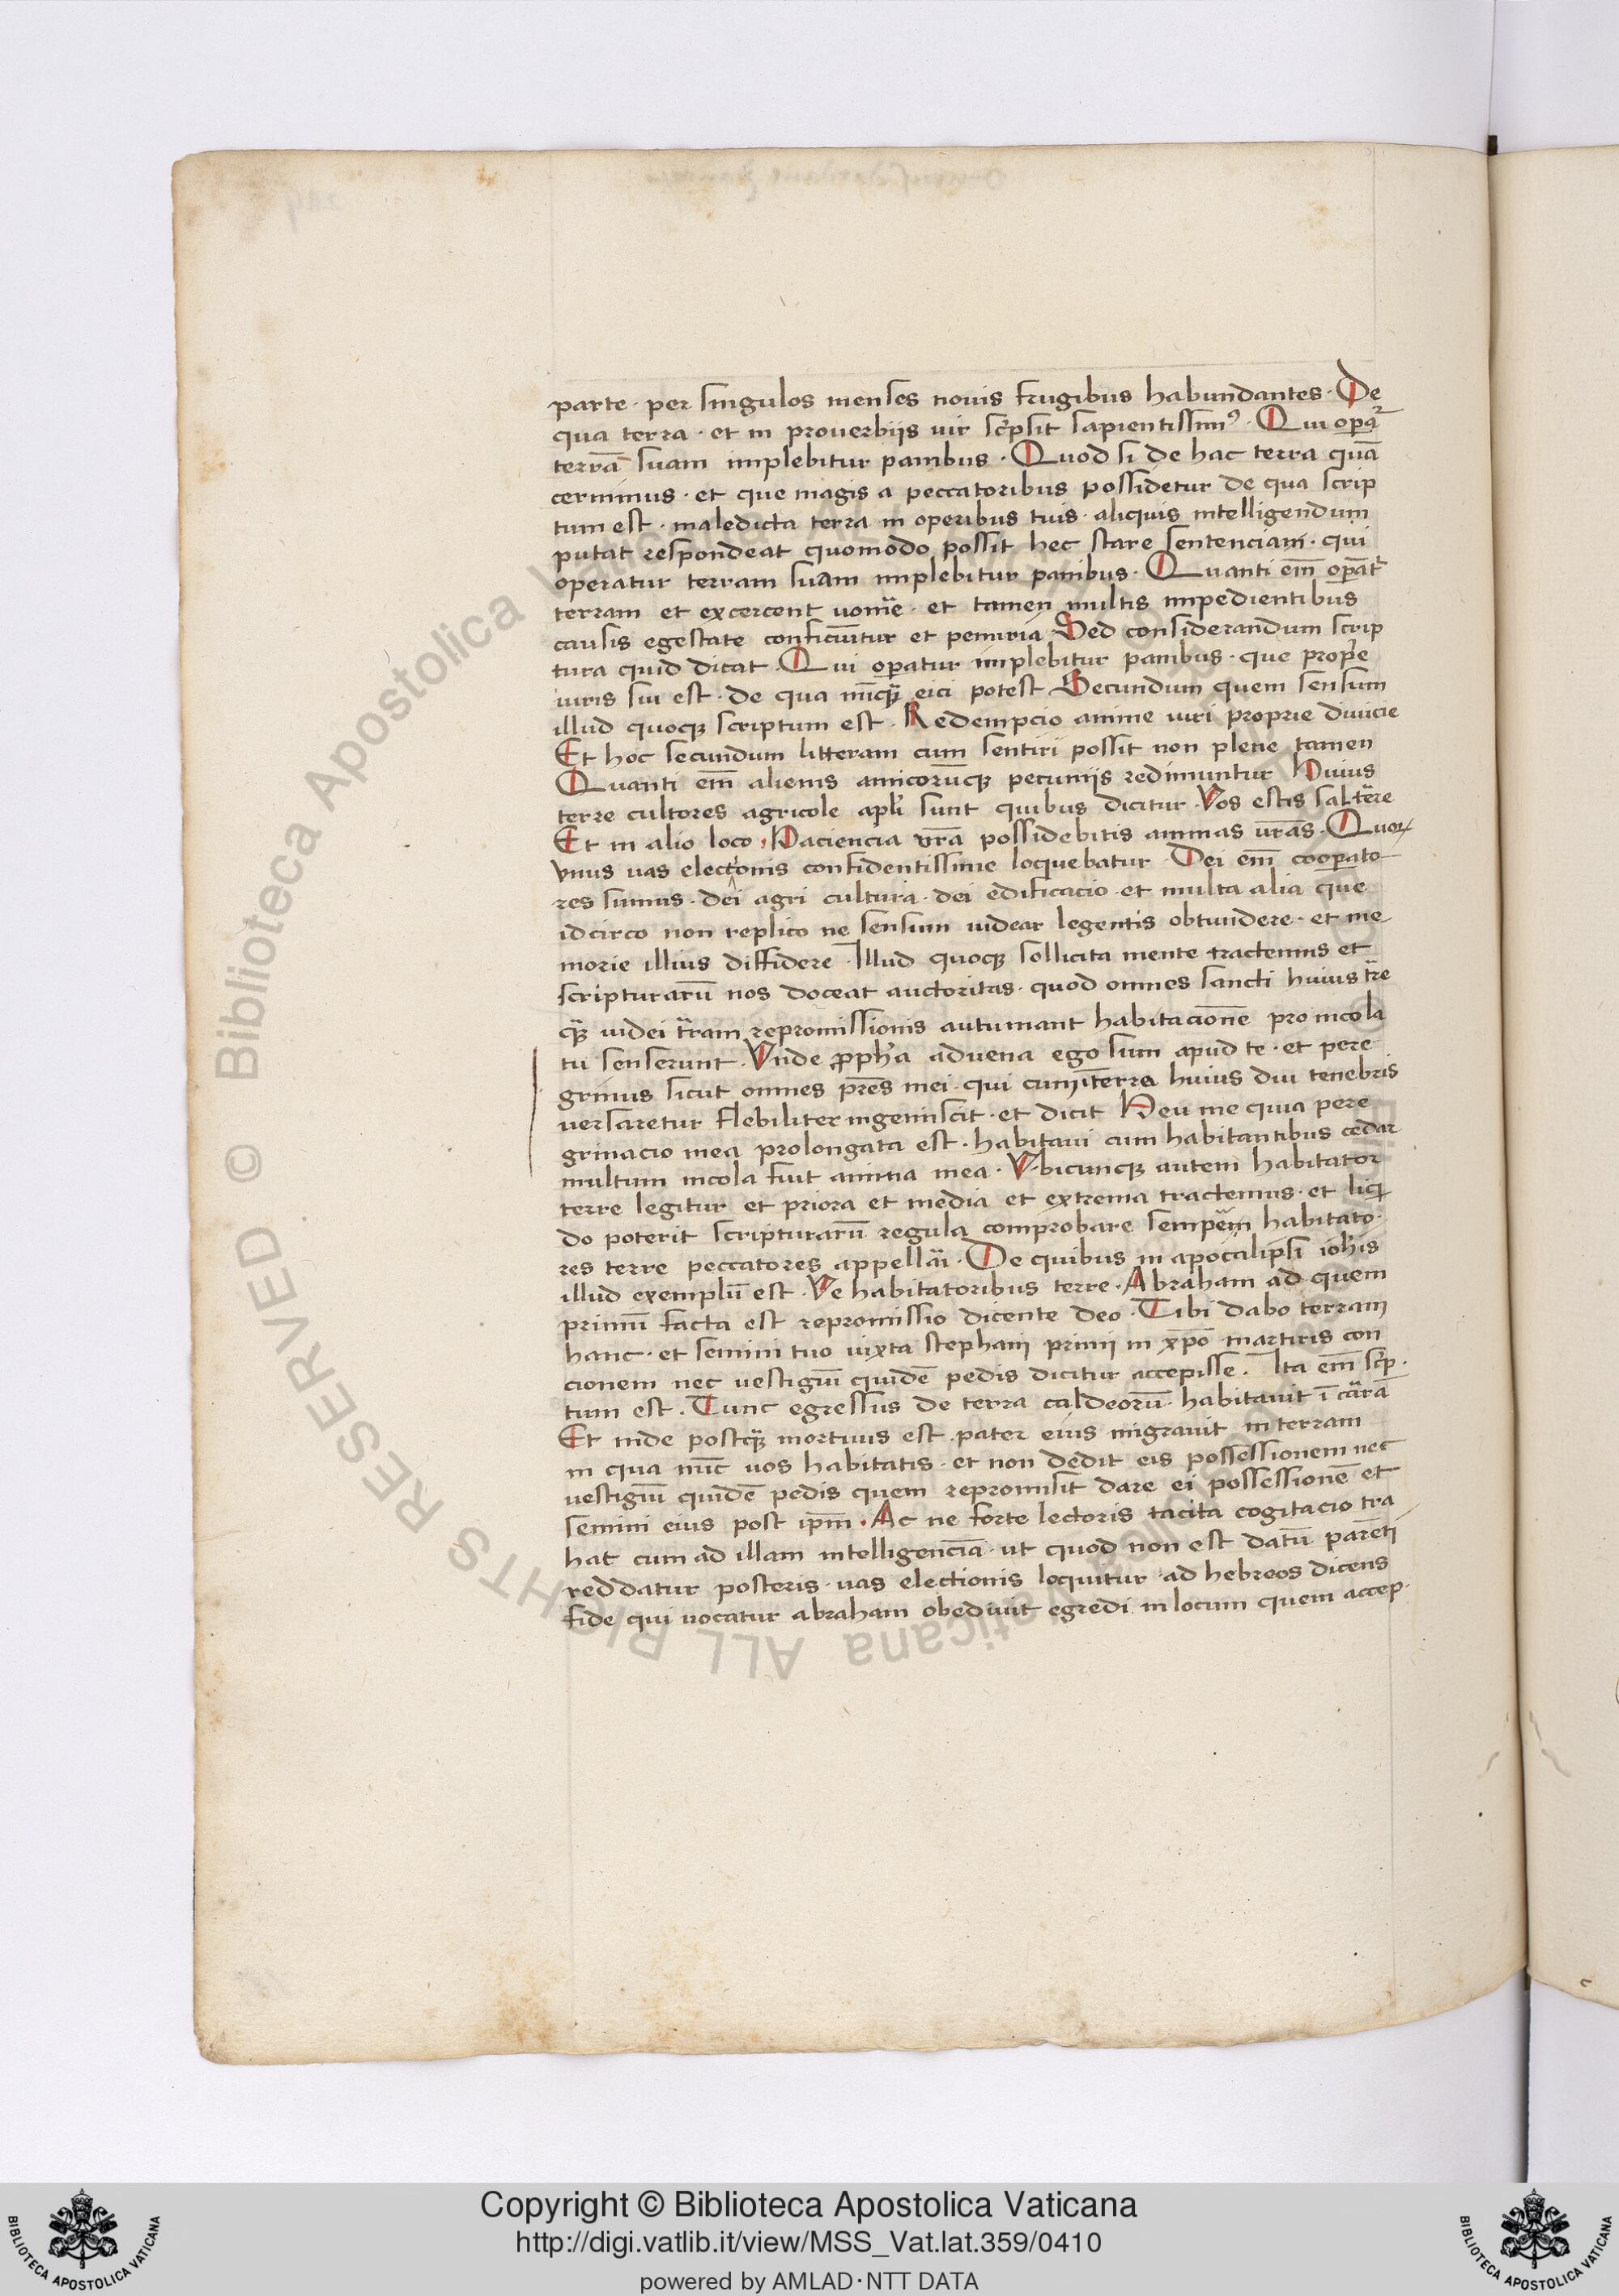 parte · per singulos menses nouis frugibus habundantes · De
qua terra · et in prouerbijs uir sc̾psit sapientissimꝰ · Qui opat̾
terrā suam implebitur panibus · Quod si de hac terra quā
cernimus · et que magis a peccatoribus possidetur de qua scrip
tum est · maledicta terra in operibus tuis · aliquis intelligendum
putat respondeat quomodo possit hec stare sentenciam · qui
operatur terram suam implebitur panibus · Quanti em̄ opat̾
terram et excercent uome · et tamen multis impedientibus
causis egestate conficiūtur et penuria · Sed considerandum scrip
tura quid dicat · Qui opatur implebitur panibus · que prop̾e
iuris sui est · de qua nūqꝫ eici potest Secundum quem sensum
illud quoqꝫ scriptum est · Redempcio anime uiri proprie diuicie
Et hoc secundum litteram cum sentiri possit non plene tamen
Quanti em̄ alienis amicorūqꝫ pecunijs redimuntur Huius
terre cultores agricole apl̾i sunt quibus dicitur · Vos estis sal tr̄e
Et in alio loco · Paciencia vr̄a possidebitis animas ur̄as · Quoꝝ
vnus uas elect̾onis confidentissime loquebatur · Dei em̄ coopato
res sumus · dei agri cultura · dei edificacio · et multa alia que
idcirco non replico ne sensum uidear legentis obtundere · et me
morie illius diffidere · Illud quoqꝫ sollicita mente tractemus et
scripturarū nos doceat auctoritas · quod omnes sancti huius tr̄e
qꝫ uidei tr̄am repromissionis autumant habitacionē pro incola
tu senserunt · Vnde ꝓph̾a aduena ego sum apud te · et pere
grinus sicut omnes pr̄es mei · qui cum ī terra huius diu tenebris
uersaretur flebiliter ingemiscit · et dicit Heu me quia pere
grinacio mea prolongata est · habitaui cum habitantibus cedar
multum incola fuit anima mea · Vbicunqꝫ autem habitator
terre legitur et priora et media et extrema tractemus · et liq̾
do poterit scripturarū regula comprobare semp em̄ habitato ·
res terre peccatores appellari · De quibus in apocalipsi ioh̾is
illud exemplū est · Ve habitatoribus terre · Abraham ad quem
primū facta est repromissio dicente deo · Tibi dabo terram
hanc · et semini tuo iuxta stephani primi in xp̄o martiris con
cionem nec uestigiū quidē pedis dicitur accepisse · Ita em̄ sc̾p ·
tum est · Tunc egressus de terra caldeorū · habitauit ī carā
Et inde postqꝫ mortuus est pater eius migrauit in terram
in qua nūc uos habitatis · et non dedit eis possessionem nec
uestigiū quidē pedis quem repromisit dare ei possessionē et
semini eius post ip̄m · Ac ne forte lectoris tacita cogitacio tra
hat cum ad illam intelligenciā · ut quod non est datū parēti
reddatur posteris · uas electionis loquitur ad hebreos dicens
fide qui uocatur abraham obediuit egredi in locum quem accep ·
Copyright © Biblioteca Apostolica Vaticana
http://digi.vatlib.it/view/MSS_Vat.lat.359/0410
powered by AMLAD·NTT DATA
BIBLIOTECA APOSTOLICA VATICANA
BIBLIOTECA APOSTOLICA VATICANA